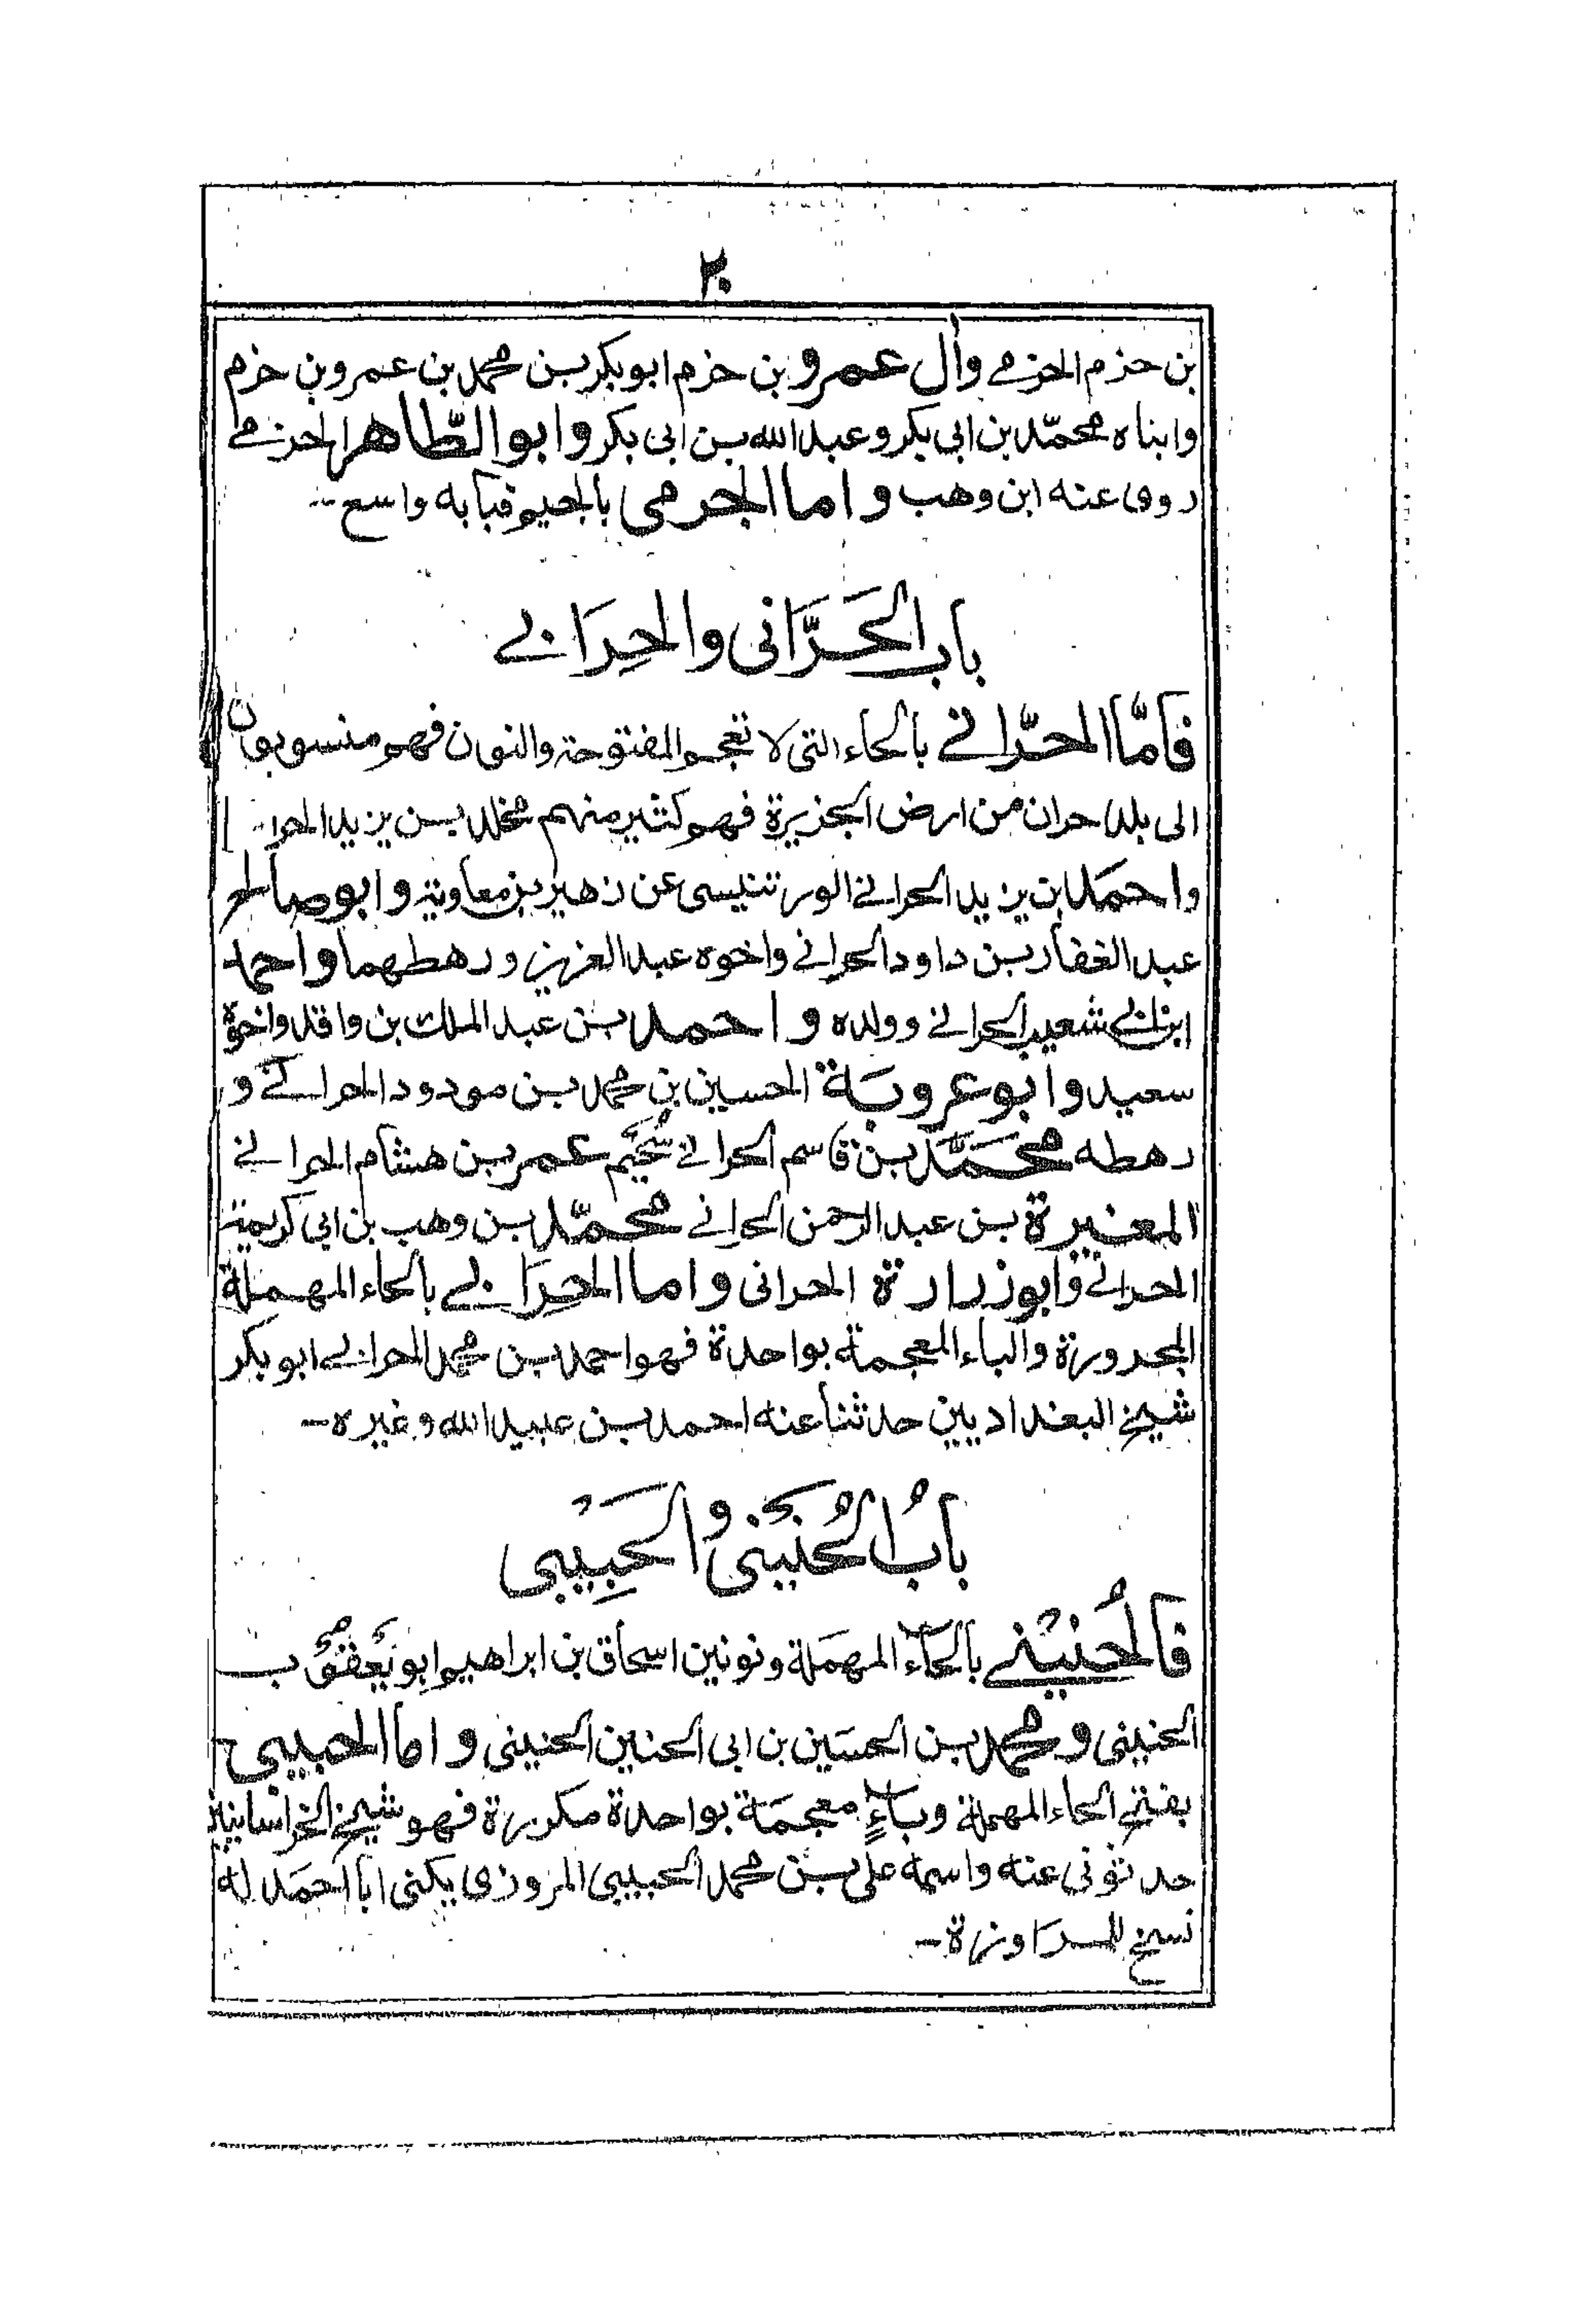 ٢٠
بن حزم الحزمي وأل عمرو بن حزم ابو بكر بن محمد بن عمرو بن حزم
وابناه محمّد بن ابي بكر وعبد الله بن ابى بكر وابو الطّاهر الحزمي
روى عنه ابن وهب واما الجرمى بالجيم فبابه واسع --
باب الحَرَّانى والحِرَابي
فامّا الحرّاني بالحاء التى لا تعجم المفتوحة والنون فهم منسوبون
الى بلد حران من ارض الجزيرة فهم كثير منهم مخلد بن يزيد الحرا
واحمَد بن يزيد الحراني الورتنيسى عن زهير بن معاوية وابو صالح
عبد الغفار بن داود الحراني واخوه عبد العزيز ورهطهما واحمد
ابن ابي شعيب الحراني وولده واحمد بن عبد الملك بن واقد واخوه
سعيد وابو عروبَة الحسين بن محمد بن مودود الحراني و
رهطه محمَّد بن قاسم الحراني سُحَيم عمر بن هشام الحراني
المغيرة بن عبد الرحمن الحراني محمّد بن وهب بن ابي كريمة
الحراني وابو زرارة الحرانى واما الحِرَابي بالحاء المهملة
المجرورة والباء المعجمة بواحدة فهو احمد بن محمد الحرابي ابو بكر
شيخ البغداديين حدثنا عنه احمد بن عبيد الله وغيره --
بابُ الحُنَيْنى والحَبِيبى
فالحُنَيْني بالحاء المهمَلة ونونين اسحاق بن ابراهيم ابو يَعقُوب
الحنينى ومحمد بن الحسَين بن ابى الحنين الحنينى واما الحبيبى
بفتح الحاء المهملة وباءٍ معجمَة بواحدة مكررة فهو شيخ الخراسانيين
حدثونى عنه واسمه على بن محمد الحبيبى المروزى يكنى ابا احمَد له
نسخ للمراوزة --